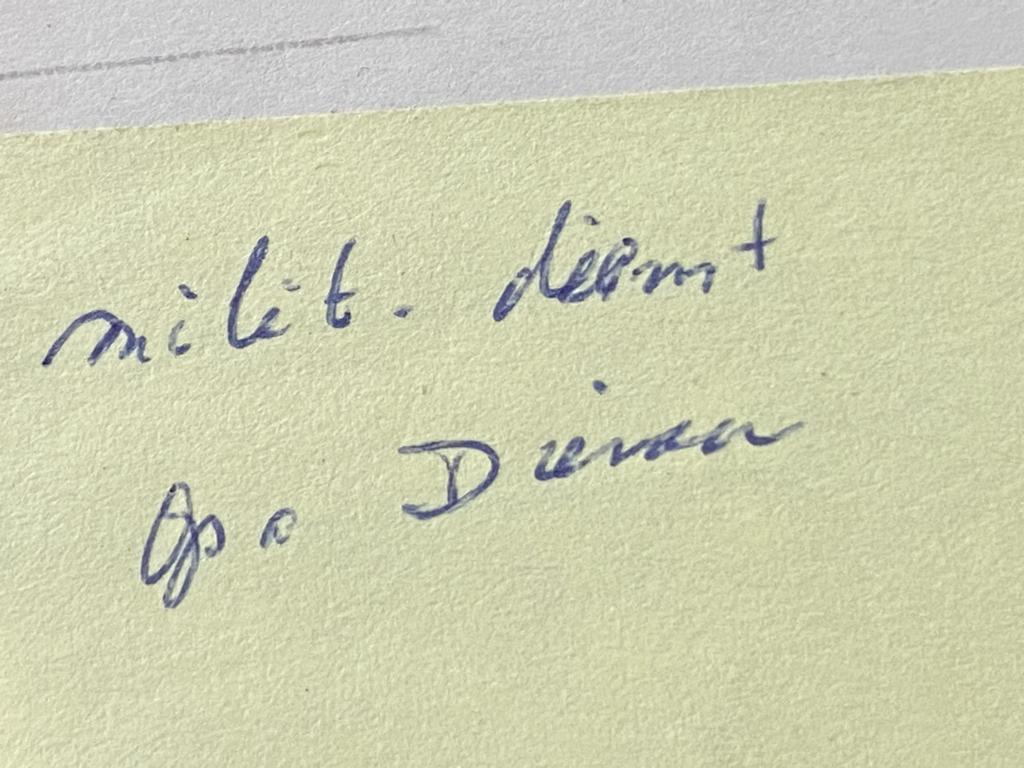 milit. dienst
Opa Dieren